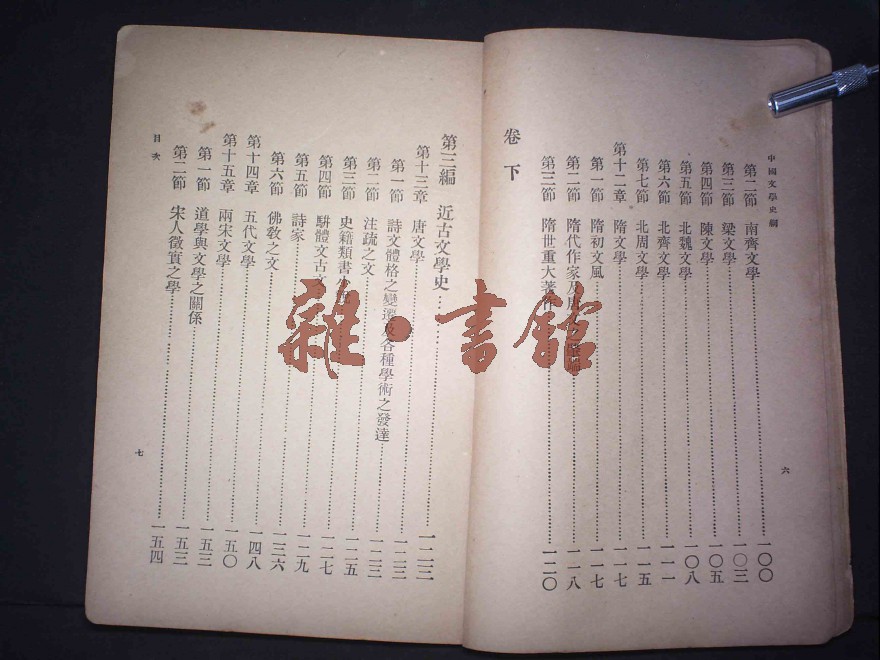 中國文學史綱
第二節 南齊文學 一〇〇
第三節 梁文學 一〇三
第四節 陳文學 一〇五
第五節 北魏文學 一〇八
第六節 北齊文學 一一一
第七節 北周文學 一一五
第十二章 隋文學 一一七
第一節 隋初文風 一一七
第二節 隋代作家及 一一八
第三節 隋世重大著作 一二〇
卷下
六
第三編 近古文學史
第十三章 唐文學 一二三
第一節 詩文體格之變遷及各種學術之發達 一二三
第二節 注疏之文 一二三
第三節 史籍類書小說 一二五
第四節 駢體文古文 一二七
第五節 詩家 一二九
第六節 佛敎之文 一三六
第十四章 五代文學 一四八
第十五章 兩宋文學 一五〇
第一節 道學與文學之關係 一五三
第二節 宋人徵實之學 一五四
目次
七
雜·書館